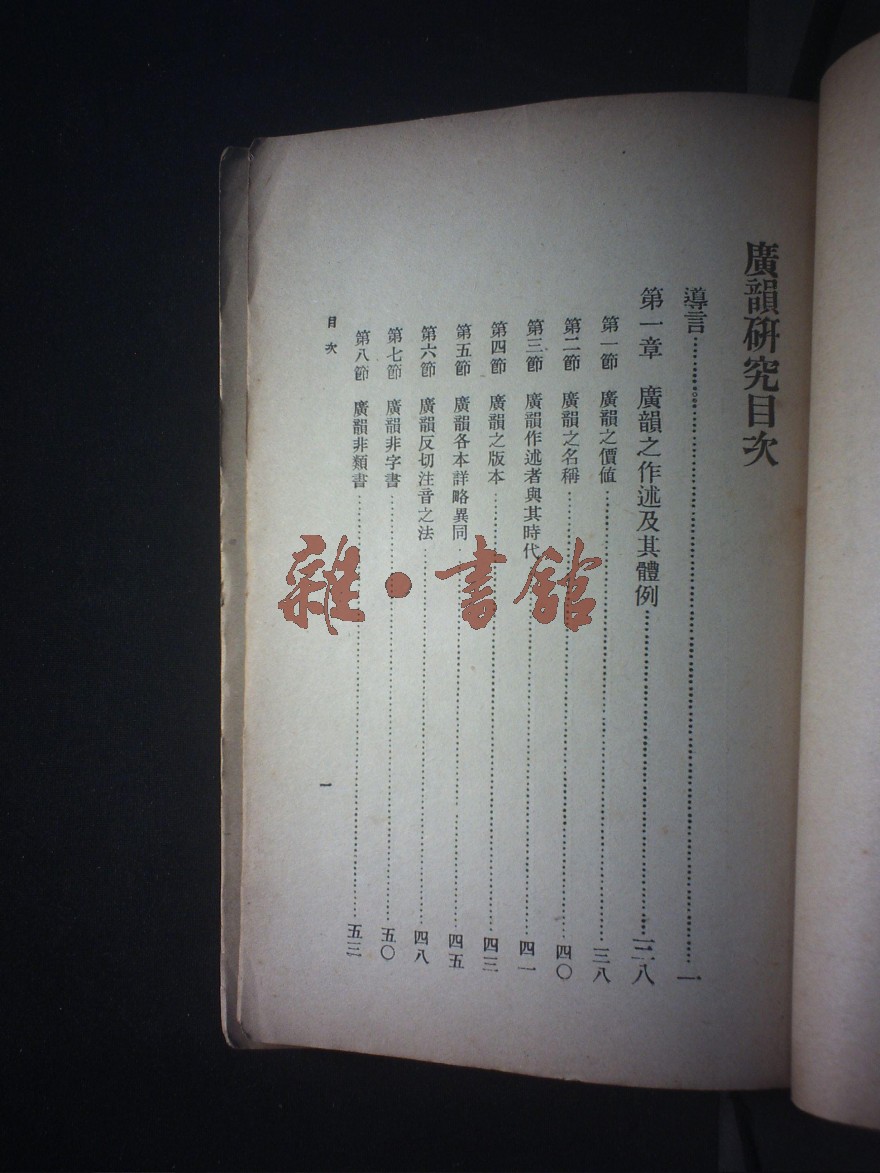 廣韻研究目次
導言……一
第一章　廣韻之作述及其體例……三八
第一節　廣韻之價值……三八
第二節　廣韻之名稱……四〇
第三節　廣韻作述者與其時代……四一
第四節　廣韻之版本……四三
第五節　廣韻各本詳略異同……四五
第六節　廣韻反切注音之法……四八
第七節　廣韻非字書……五〇
第八節　廣韻非類書……五三
目次
一
雜·書館